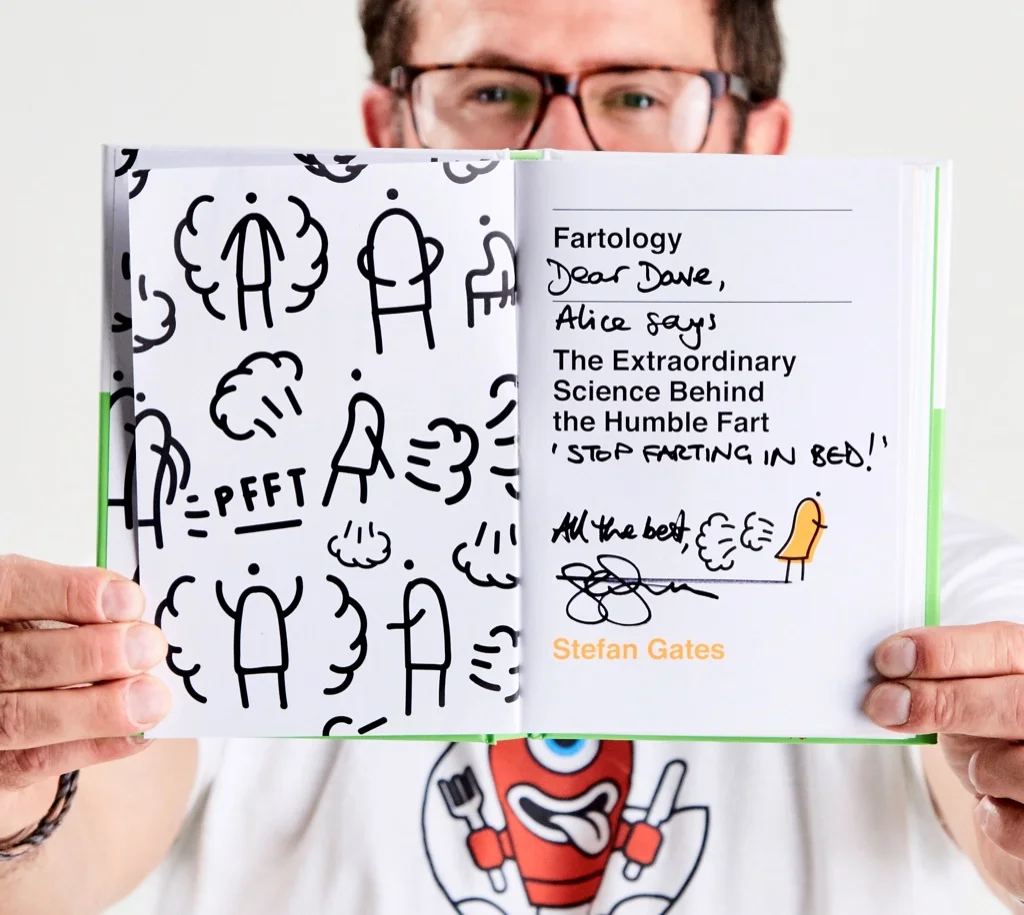 PFFT
Fartology
Dear Dave,
Alice says
The Extraordinary
Science Behind
the Humble Fart
'STOP FARTING IN BED!'
All the best,
Stefan Gates